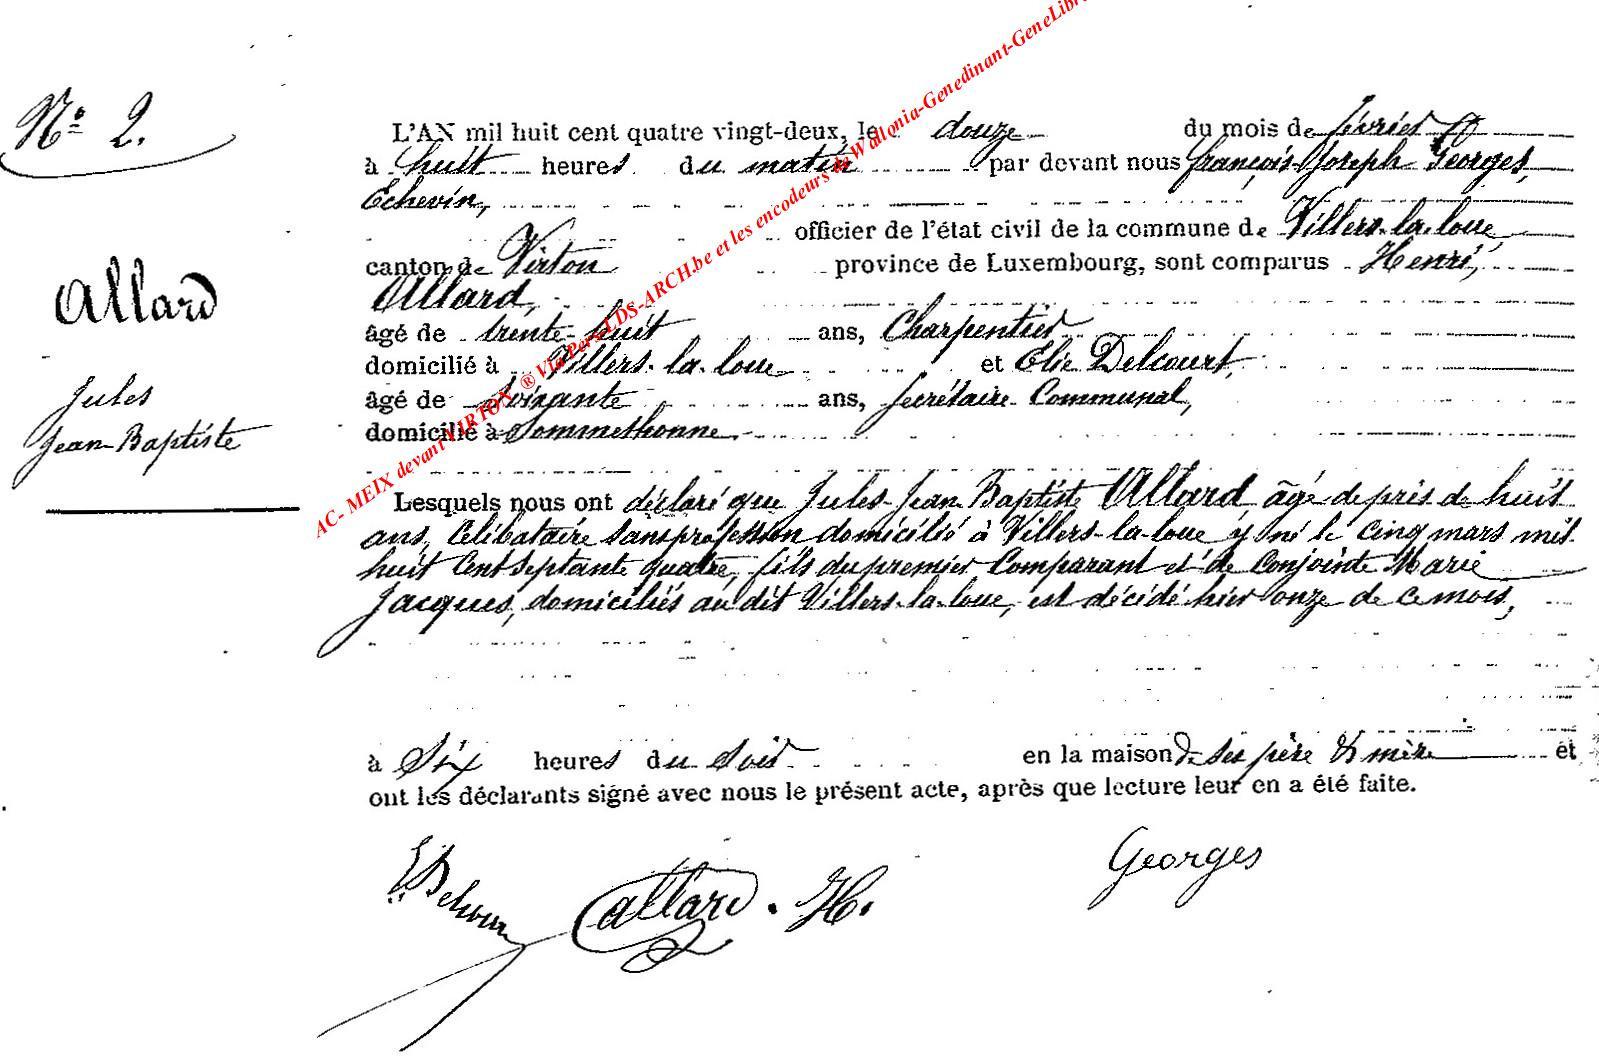 N° 2.
Allard
Jules
Jean-Baptiste
L'AN mil huit cent quatre vingt-deux, le douze du mois de février
à huit heures du matin par devant nous françois-Joseph Georges,
Echevin,
officier de l'état civil de la commune de Villers-la-loue,
canton de Virton province de Luxembourg, sont comparus Henri,
Allard,
âgé de trente-huit ans, Charpentier
domicilié à Villers-la-loue et Elie Delcourt,
âgé de Soixante ans, Secrétaire Communal,
domicilié à Sommethonne.
Lesquels nous ont déclaré que Jules-Jean-Baptiste Allard âgé de près de huit
ans, Célibataire sans profession domicilié à Villers-la-loue y né le cinq mars mil
huit Cent septante quatre, fils du premier Comparant et de Conjointe Marie
Jacques, domiciliés au dit Villers-la-loue, est décédé hier onze de ce mois,
à Six heures du Soir en la maison de ses père & mère et
ont les déclarants signé avec nous le présent acte, après que lecture leur en a été faite.
E. Delcourt Allard. H. Georges
AC- MEIX devant VIRTON ® Via Pers LDS-ARCH.be et les encodeurs Wallonia-Genedinant-GeneLibr